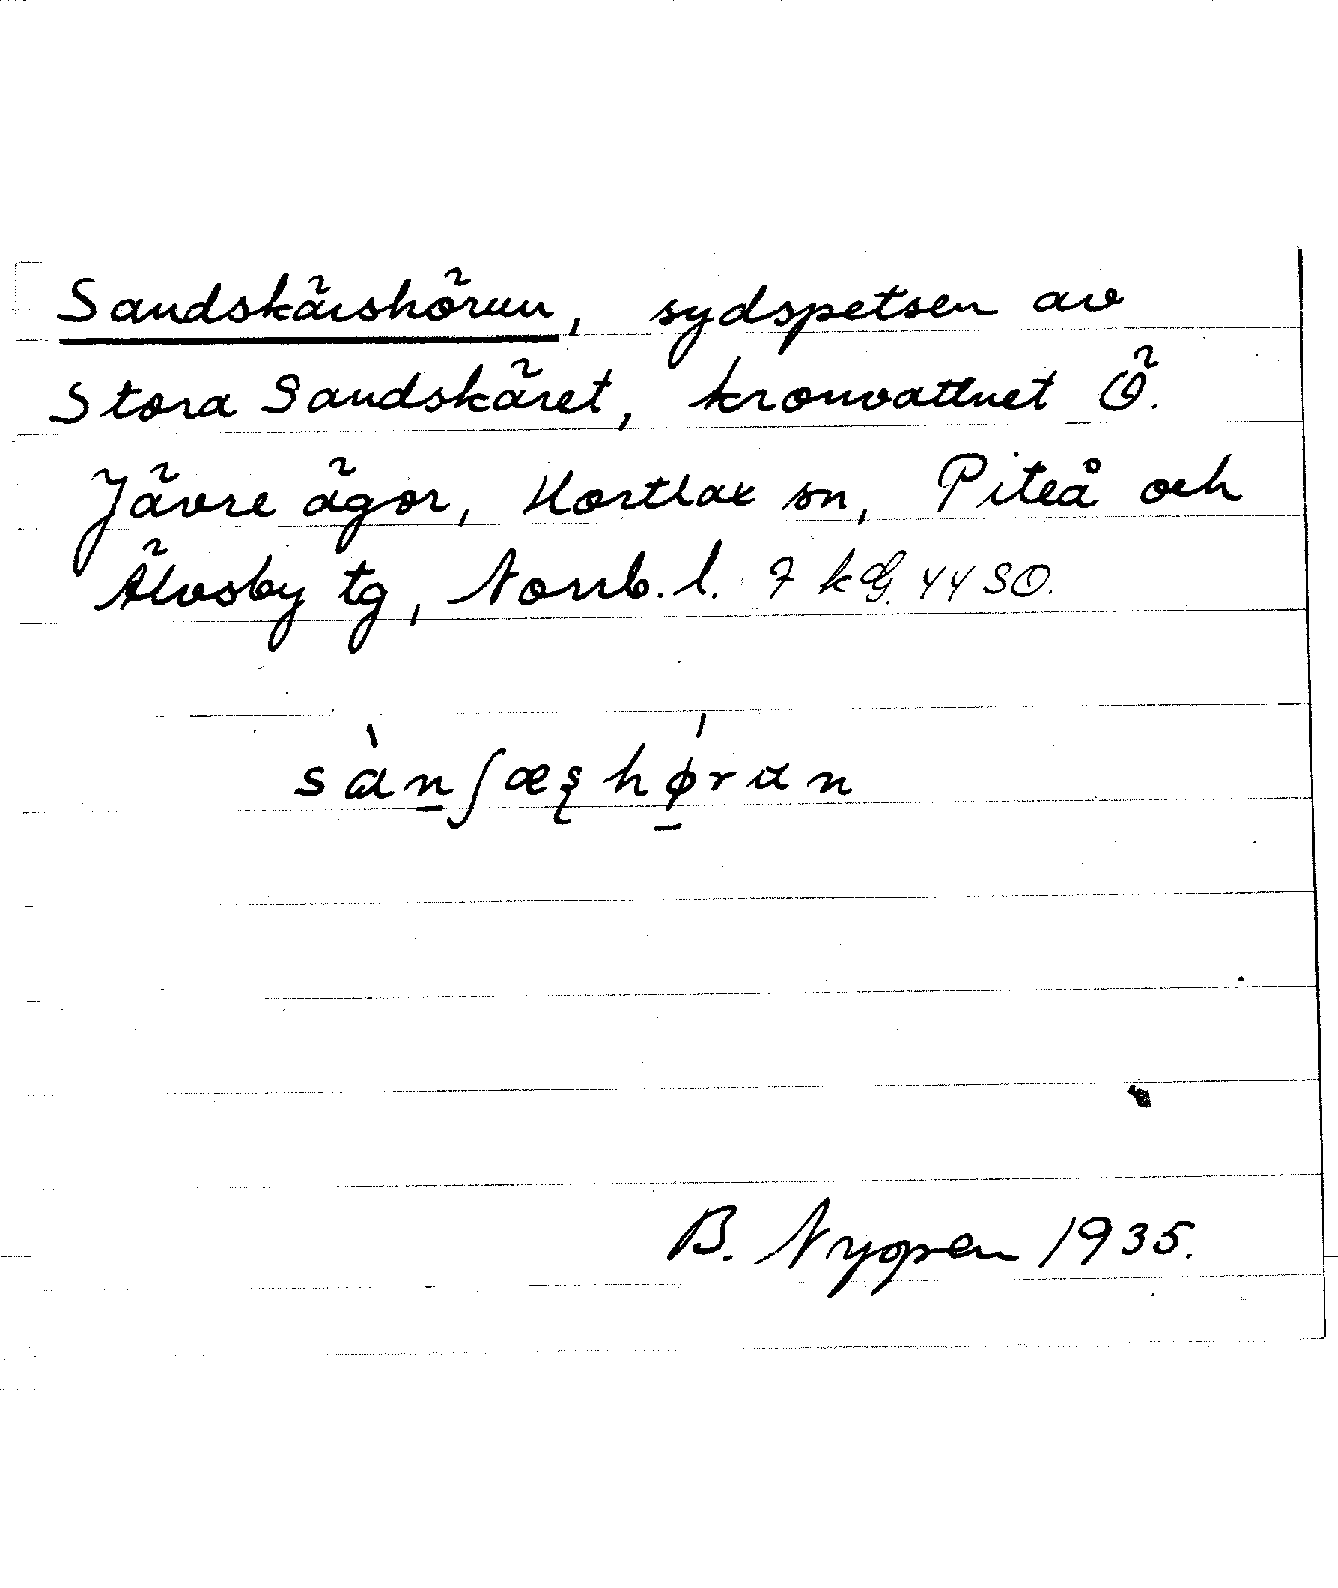 Sandskärshörun, sydspetsen av
Stora Sandskäret, kronvattnet Ö.
Jävre ägor, Hortlax sn, Piteå och
Älvsby tg, Norrb. l. 7 kG. 44 SO.
sànʃæʂhǿrun
B. Nygren 1935.